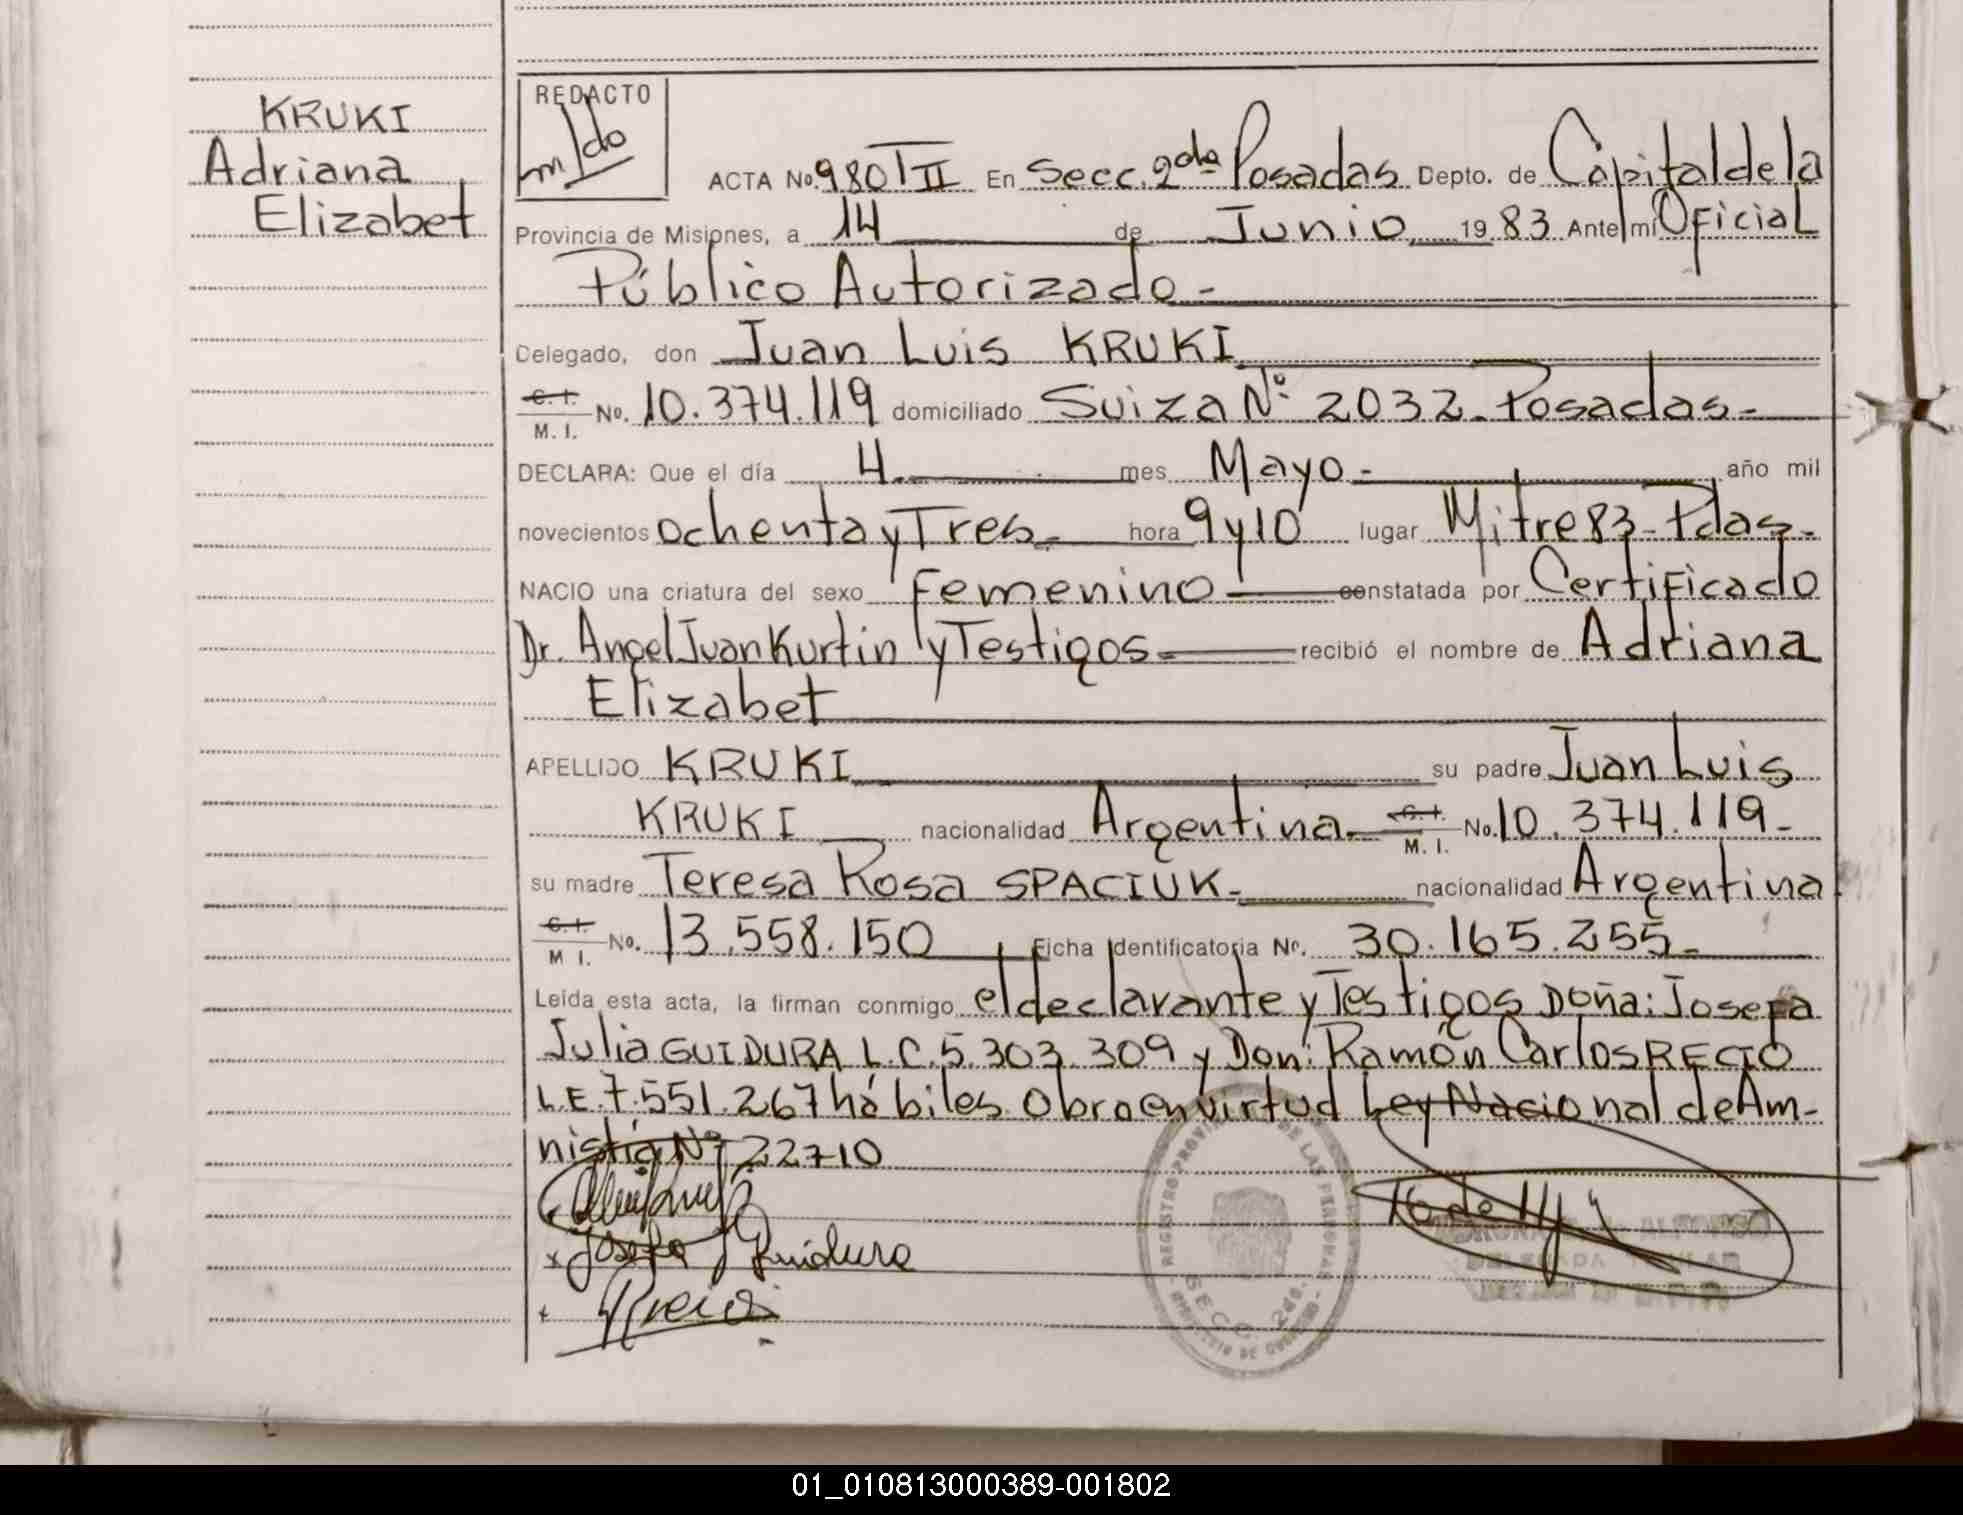 KRUKI
Adriana
Elizabet
REDACTO
ACTA No. 980 T II En Secc. 2da Posadas Depto. de Capital de la
Provincia de Misiones, a 14 de Junio 19 83 Ante mi Oficial
Público Autorizado -
Delegado, don Juan Luis KRUKI
C. I.
M. I. No. 10.374.119 domiciliado Suiza Nº 2032 - Posadas -
DECLARA: Que el día 4. mes Mayo - año mil
novecientos ochenta y Tres - hora 9 y 10' lugar Mitre 83 - Pdas -
NACIO una criatura del sexo Femenino constatada por Certificado
Dr. Angel Juan Kurtin y Testigos - recibió el nombre de Adriana
Elizabet
APELLIDO KRUKI su padre Juan Luis
KRUKI nacionalidad Argentina - C. I.
M. I. No. 10.374.119 -
su madre Teresa Rosa SPACIUK - nacionalidad Argentina
C. I.
M I. No. 13.558.150 Ficha Identificatoria Nº. 30.165.255 -
Leída esta acta, la firman conmigo el declarante y Testigos Doña: Josefa
Julia GUIDURA L.C. 5.303.309 y Don: Ramón Carlos RECIO
L.E. 7.551.267 hábiles Obra en virtud Ley Nacional de Am-
nistía Nº 22710
Josefa J Guidura
REGISTRO PROVINCIAL DE LAS PERSONAS
SECC. 2da.
01_010813000389-001802